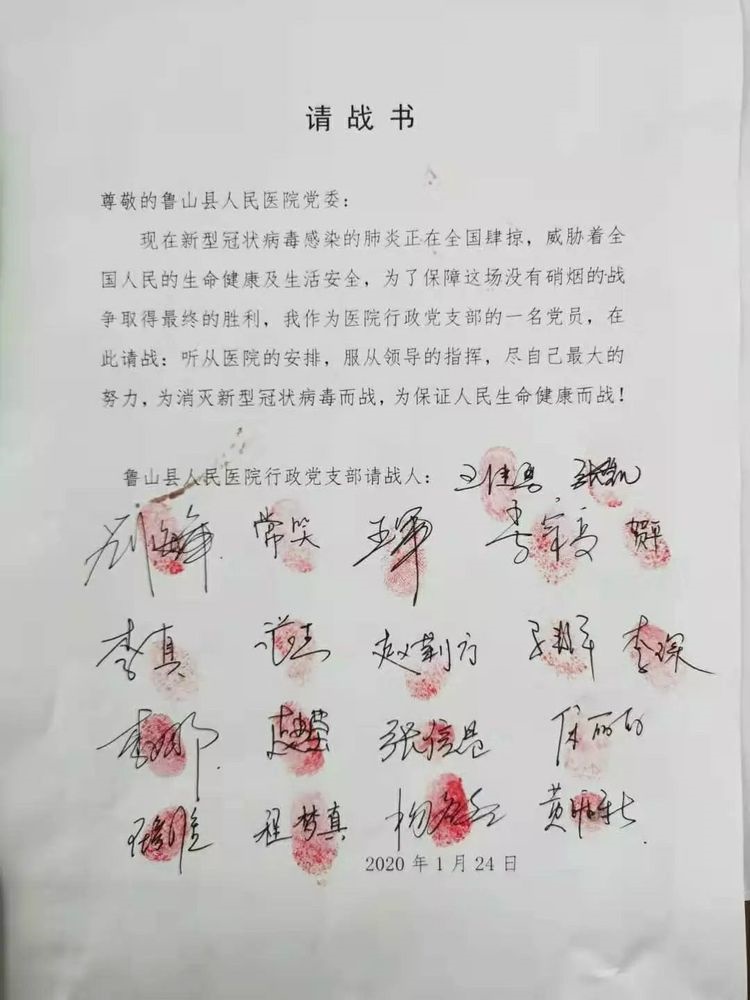 请战书
尊敬的鲁山县人民医院党委：
现在新型冠状病毒感染的肺炎正在全国肆掠，威胁着全
国人民的生命健康及生活安全，为了保障这场没有硝烟的战
争取得最终的胜利，我作为医院行政党支部的一名党员，在
此请战：听从医院的安排，服从领导的指挥，尽自己最大的
努力，为消灭新型冠状病毒而战，为保证人民生命健康而战！
鲁山县人民医院行政党支部请战人：
常笑 王军
李真 李琛
李娜 张信昆
程梦真
2020年1月24日